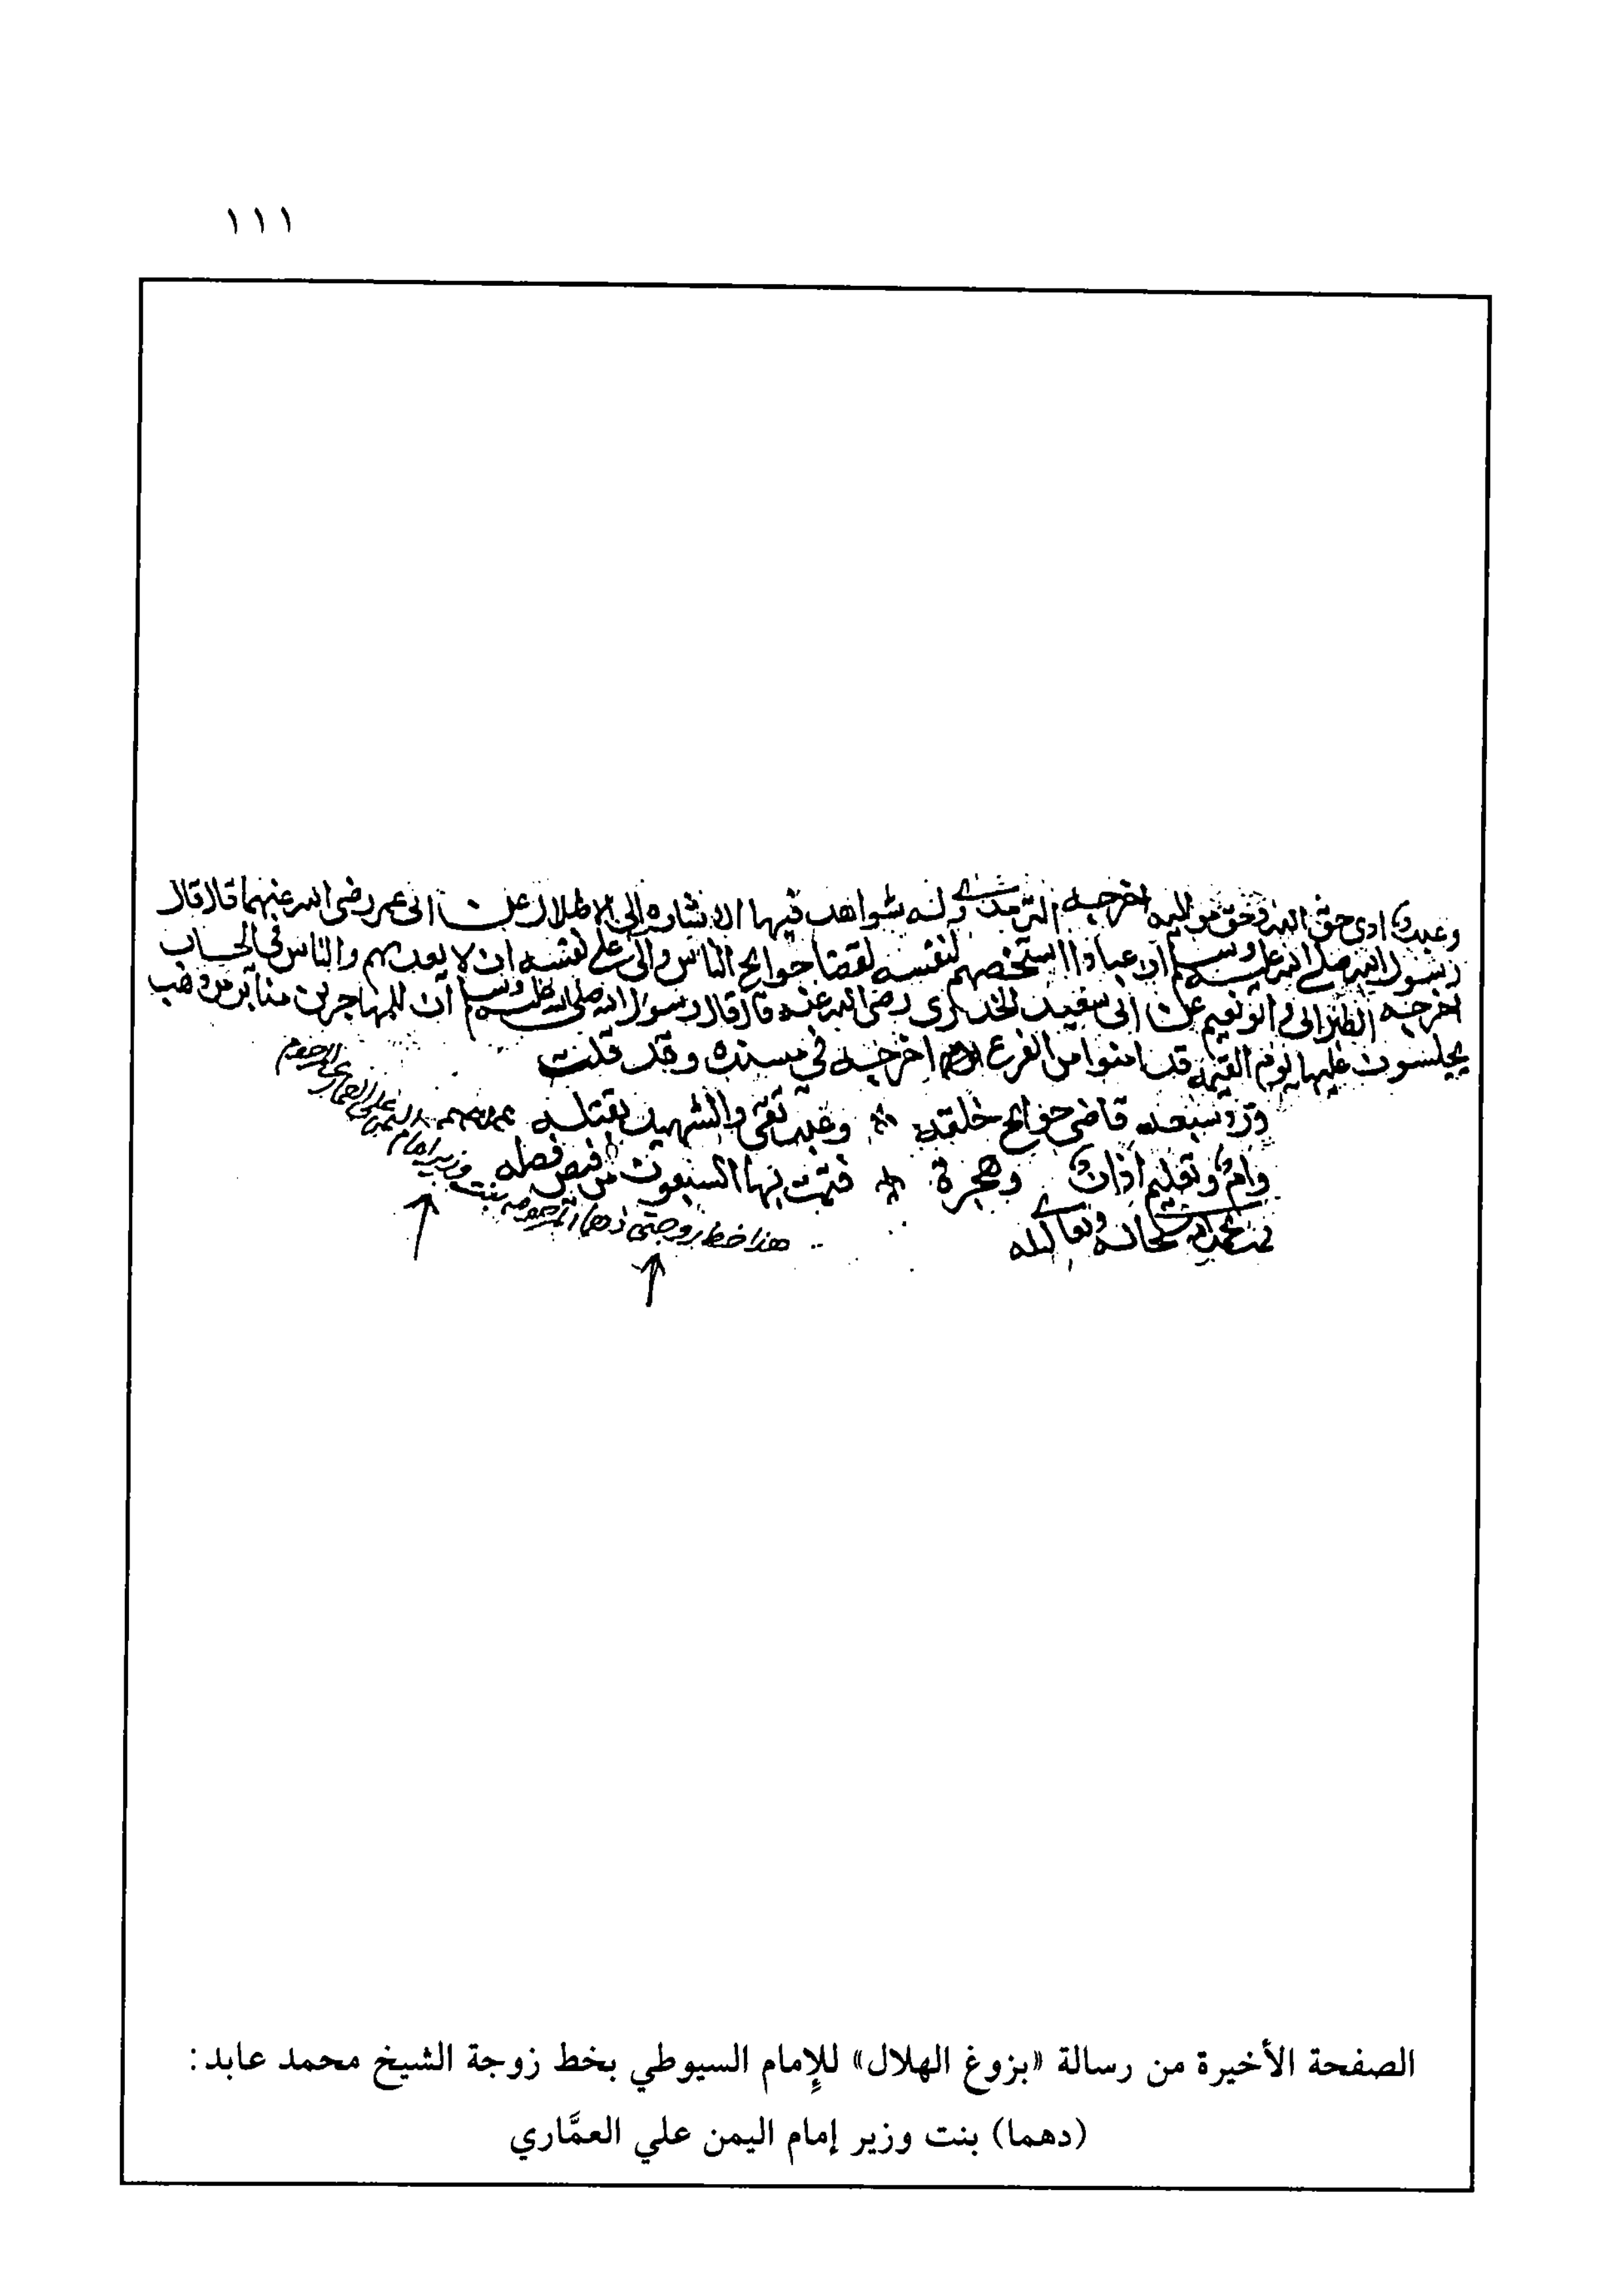 ١١١
وعبد ادى حق الله وحق مواليه اخرجه الترمذي وله شواهد فيها الاشاره الى الاظلال عن ابى عمر رضى الله عنهما قال قال
رسول الله صلى الله عليه وسلم ان عبادا استخصهم لنفسه لقضا حوايج الناس والى على نفسه ان لا يعذبهم والناس فى الحساب
اخرجه الطبرانى وابو نعيم عن ابى سعيد الخدرى رضى الله عنه قال قال رسول الله صلى الله عليه وسلم ان للمهاجرين منابر من ذهب
يجلسون عليها يوم القيمه قد امنوا من الفزع اخرجه فى مسنده وقد قلت
وزد سبعه قاضى حوايج خلقه وعبد تقى والشهيد بقتله
وام وتعليم اذان وهجرة فتمت بها السبعون من فيض فضله
تمت بحمد الله سبحانه وتعالى
هذا خط زوجتى دهما المرحومه بنت وزير امام اليمن على العمارى المرحوم
الصفحة الأخيرة من رسالة «بزوغ الهلال» للإمام السيوطي بخط زوجة الشيخ محمد عابد:
(دهما) بنت وزير إمام اليمن علي العمَّاري